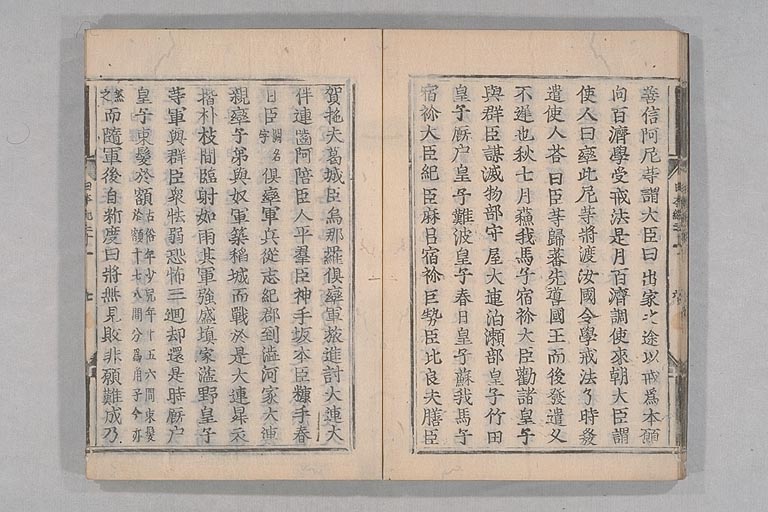 善信阿尼等謂大臣曰出家之途以戒爲本願
向百濟學受戒法是月百濟調使來朝大臣謂
使人曰率此尼等將渡汝國令學戒法了時發
遣使人荅曰臣等歸蕃先噵國王而後發遣亦
不遅也秋七月蘓我馬子宿祢大臣勸諸皇子
與群臣謀滅物部守屋大連泊瀬部皇子竹田
皇子廐户皇子難波皇子春日皇子蘇我馬子
宿祢大臣紀臣麻呂宿祢巨勢臣比良夫膳臣
賀拖夫葛城臣烏那羅俱率軍旅進討大連大
伴連囓阿陪臣人平羣臣神手坂本臣糠手春
日臣闕名字俱率軍兵從志紀郡到澁河家大連
親率子弟與奴軍築稲城而戰於是大連昇衣
揩朴枝間臨射如雨其軍強盛塡家溢野皇子
等軍與群臣衆怯弱恐怖三廻却還是時廐户
皇子束髮於額古俗年少兒年十五六間束髮於額十七八間分爲角子今亦
然之而隨軍後自忖度曰將無見敗非願難成乃